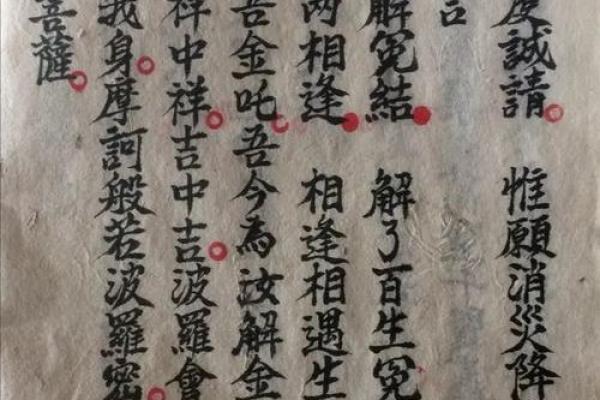 誠請 惟願消災降
解寃結 解了百生寃
相逢 相逢相遇生
吾金吒吾今為汝解金
祥中祥吉中吉波羅會
我身摩訶般若波羅密
菩薩